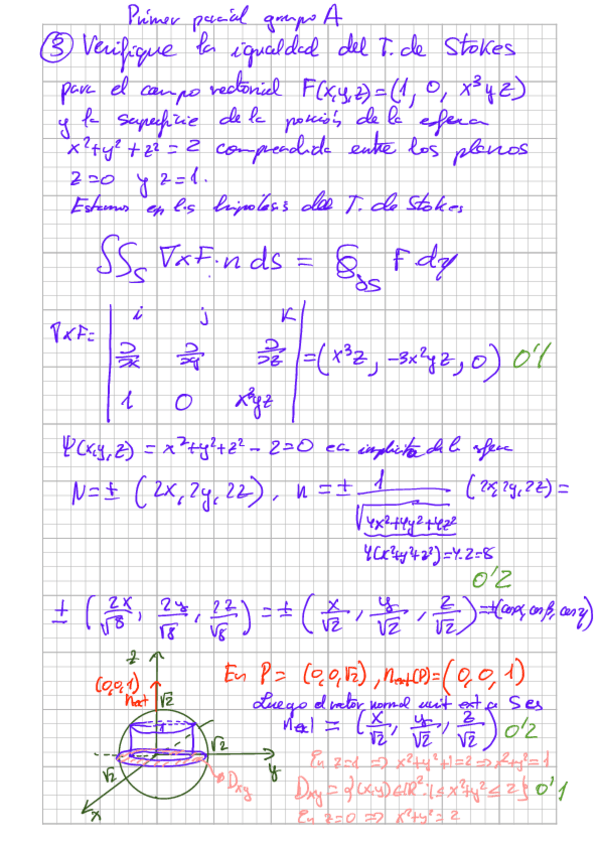 Primer parcial grupo A
③ Verifique la igualdad del T. de Stokes
para el campo vectorial F(x,y,z)=(1, 0, x³yz)
y la superficie de la porción de la esfera
x²+y²+z²=2 comprendida entre los planos
z=0 y z=1.
Estamos en las hipótesis del T. de Stokes
∬_S ∇×F·n ds = ∮_∂S F dγ
∇×F= | i j K |
| ∂/∂x ∂/∂y ∂/∂z | =(x³z, -3x²yz, 0) 0'1
| 1 0 x³yz |
Ψ(x,y,z) = x²+y²+z²-2=0 ec implícita de la esfera
N=± (2x, 2y, 2z), n=± 1/√(4x²+4y²+4z²) (2x,2y,2z)=
4(x²+y²+z²)=4·2=8
0'2
± (2x/√8, 2y/√8, 2z/√8) = ± (x/√2, y/√2, z/√2) = ±(cosα, cosβ, cosγ)
En P = (0,0,√2), n_ext(P)=(0,0,1)
Luego el vector normal unit ext a S es
n_ext = (x/√2, y/√2, z/√2) 0'2
z
(0,0,1)
n_ext
√2
1
√2
√2
y
x
D_xy
En z=1 ⇒ x²+y²+1=2 ⇒ x²+y²=1
D_xy = {(x,y)∈ℝ²: 1≤x²+y²≤2} 0'1
En z=0 ⇒ x²+y²=2